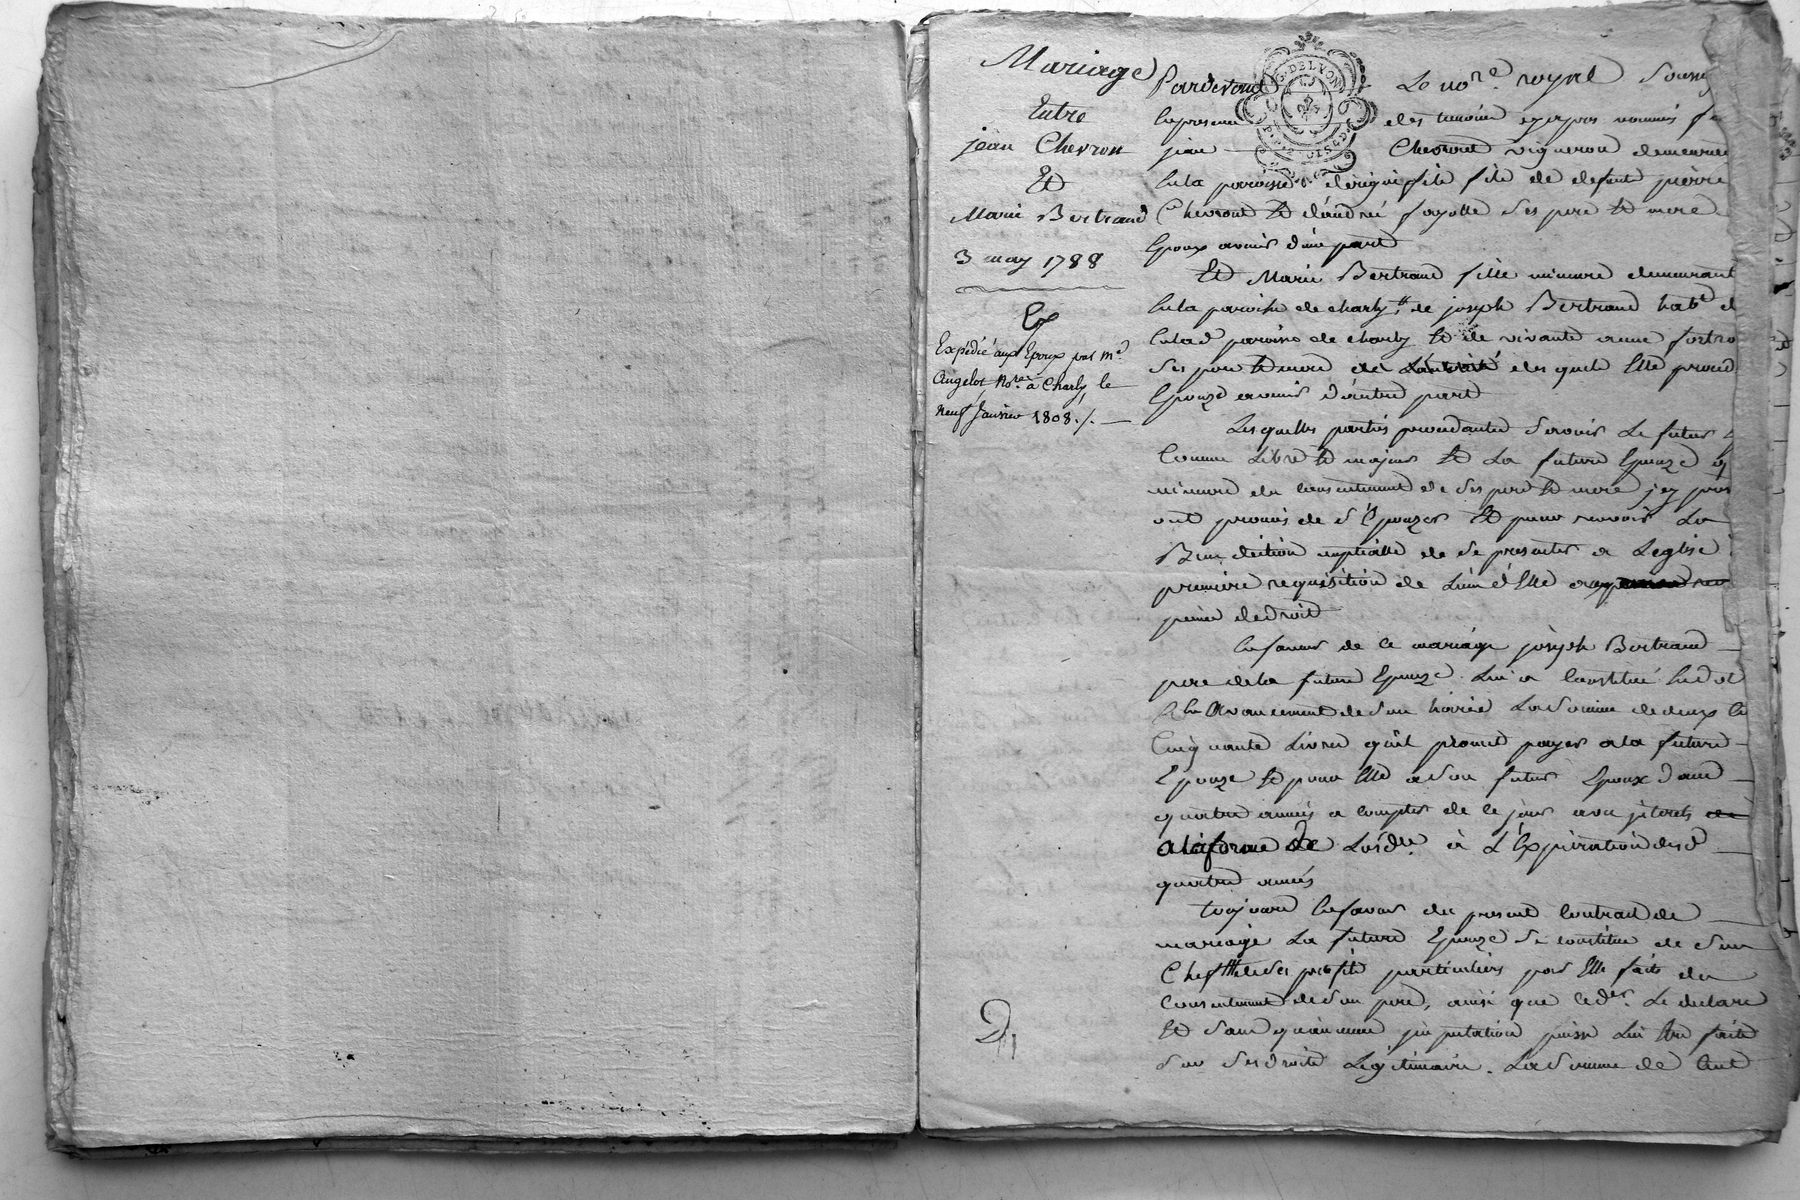 Mariage
Entre
jean Chevron
Et
Marie Bertrand
3 may 1788
Ex
Expédié aux Epoux par Me
Angelot Nore à Charly, le
neuf Janvier 1808 ./. —
G. DE LYON
Pardevant Le nore. royal Soussig
les temoins cy apres nommés
jean Chevront vigneron demeurant
en la paroisse d'irigni fils de defunt pierre
Chevront Et d'andrée fayolle Ses pere Et mere
Epoux avenir d'une part
Et Marie Bertrand fille mineure demeurant
En la paroisse de charly, de joseph Bertrand habt d
En lad paroisse de charly Et de vivante anne
Ses pere Et mere de L'autorité desquels Elle proced
Epouze avenir d'autre part
Lesquelles parties procedantes Scavoir Le futur
Comme Libre Et majeur Et La future Epouze
mineure du Consentement de Ses pere Et mere
ont promis de S'Epouzer Et pour recevoir La
Benediction nuptialle de Se presenter a Leglise
premiere requisition de L'un d'Elle
peine de droit
En faveur de Ce mariage joseph Bertrand
pere de la future Epouze Lui a Constitué En dot
En Avancement de Son hoirie La Somme de deux C
Cinquante Livres qu'il promet payer a la future
Epouze Et pour Elle a Son futur Epoux dans
quatre années a Compter de Ce jour
a la forme de Lord.re à L'Expiration desd
quatre années
Toujours En faveur du present Contrat de
mariage La future Epouze Se Constitue de Son
Chef Et de Ses profits particuliers par Elle faits du
Consentement de Son pere, ainsi que Ceder. Le declare
Et Sans qu'aucune jmputation puisse Lui Etre faite
Sur Ses droits Legitimaires. La Somme de Cent